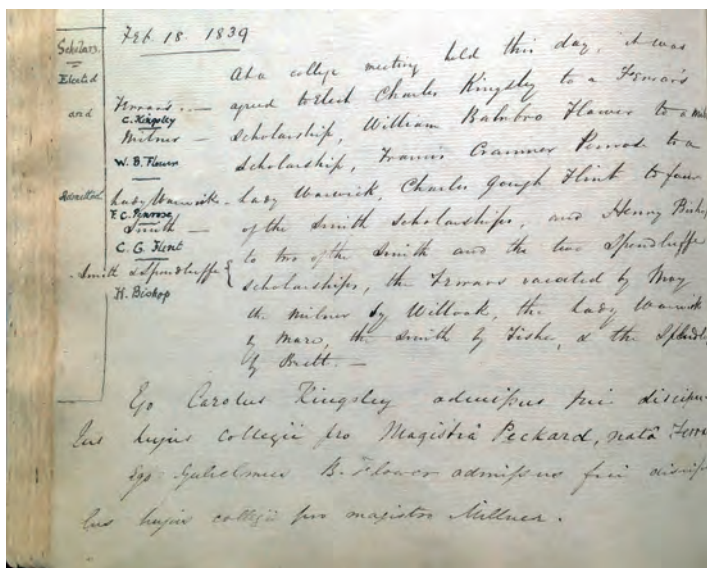 Feb 18. 1839
Scholars.
Elected
and
Admitted
Ferrar's. —
C. Kingsley
Milner —
W. B. Flower
Lady Warwick -
F. C. Penrose
Smith —
C. G. Flint
Smith & Spondluffe {
H. Bishop
At a college meeting held this day, it was
agreed to elect Charles Kingsley to a Ferrar's
scholarship, William Balmbro Flower to a
scholarship, Francis Cranmer Penrose to a
Lady Warwick, Charles Gough Flint to four
of the Smith scholarships, and Henry Bishop
to two of the Smith and the two Spondluffe
scholarships, the Ferrars vacated by May
the Milner by the Lady Warwick
by the Smith by Fisher, & the
by Brett. —
Ego Carolus Kingsley admissus fui discipu-
lus hujus collegii pro Magistrâ Peckard, natâ
Ego Gulielmus B. Flower admissus fui discip
lus hujus collegii pro magistro Millner.